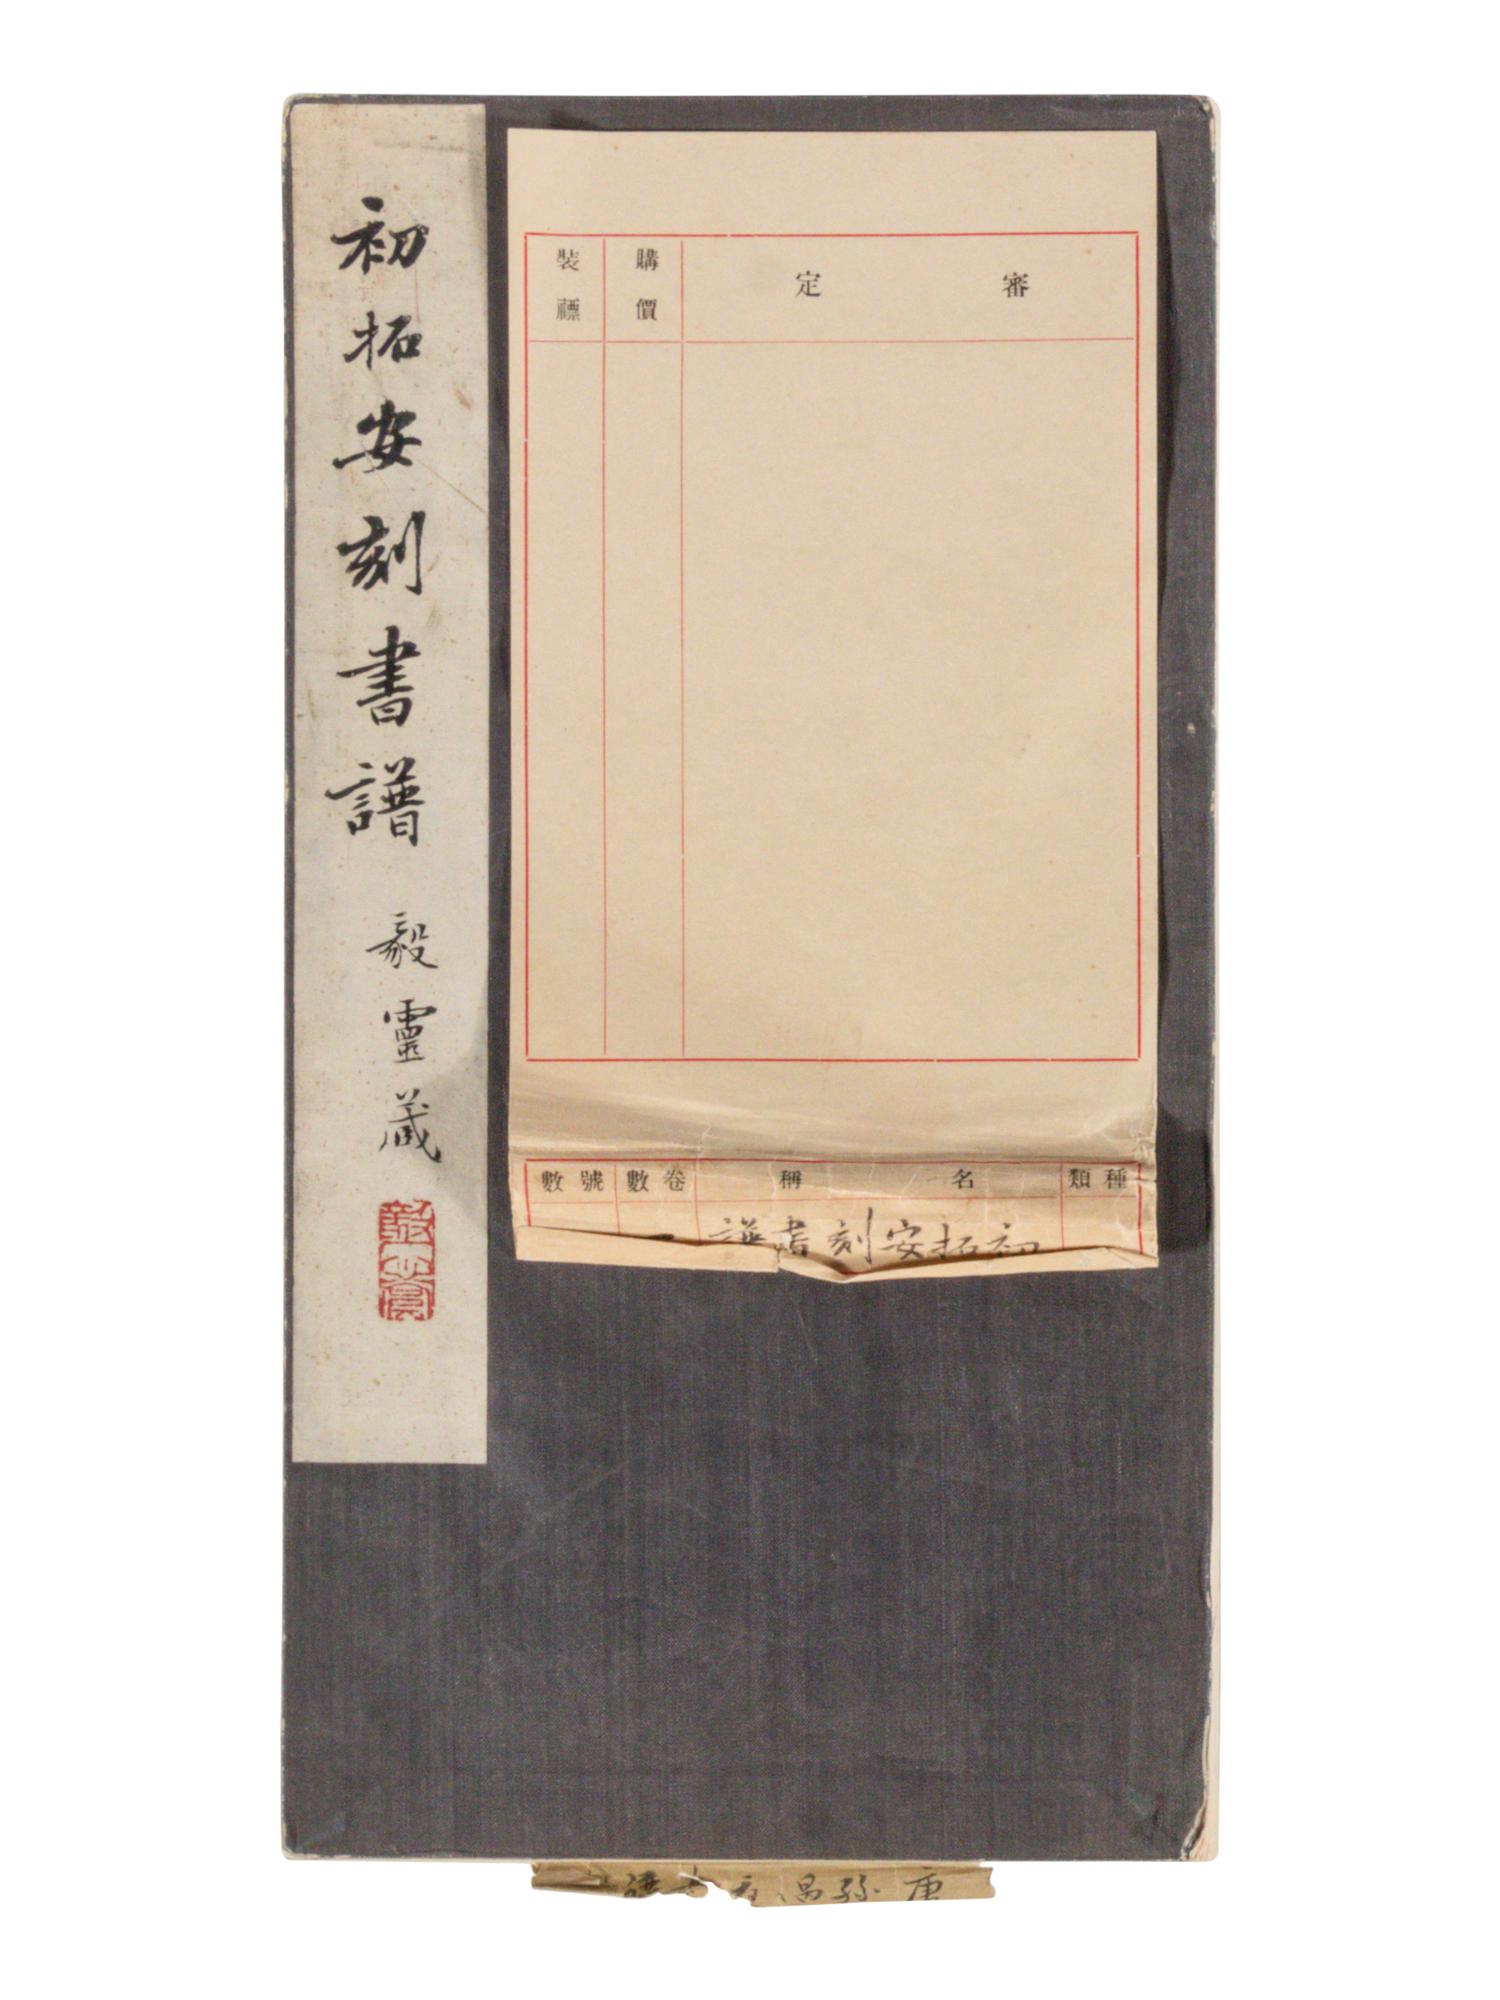 初拓安刻書譜
毅靈藏
審定
購價
裝標
種類
名稱
卷數
號數
初拓安刻書譜
一
唐孫過